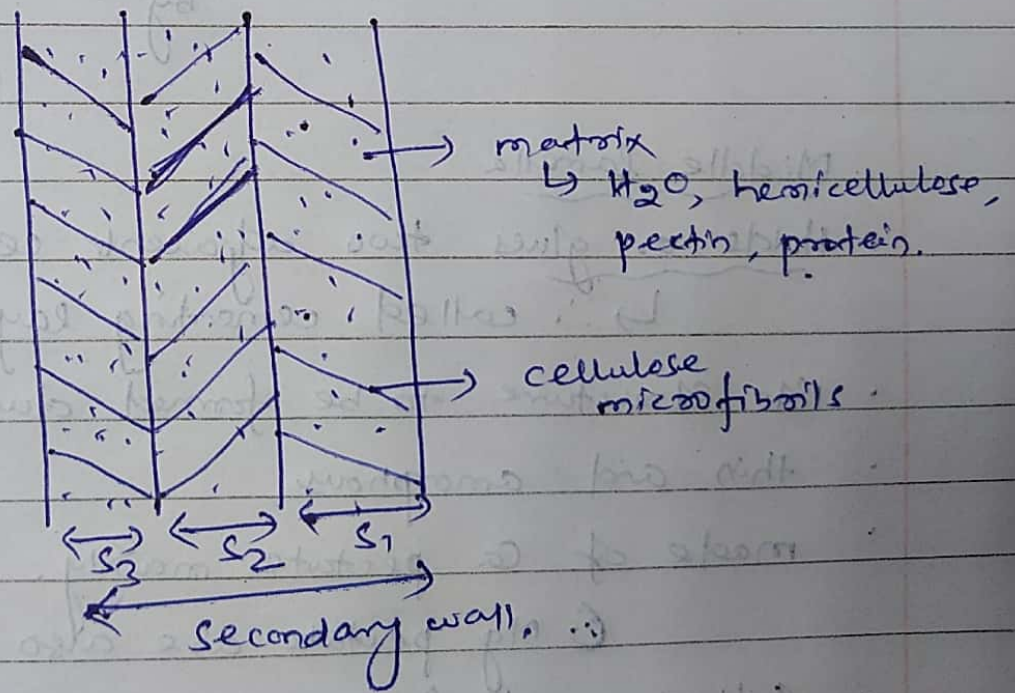 matrix
↳ H2O, hemicellulose,
pectin, protein.
cellulose
microfibrils.
S3 S2 S1
secondary wall.